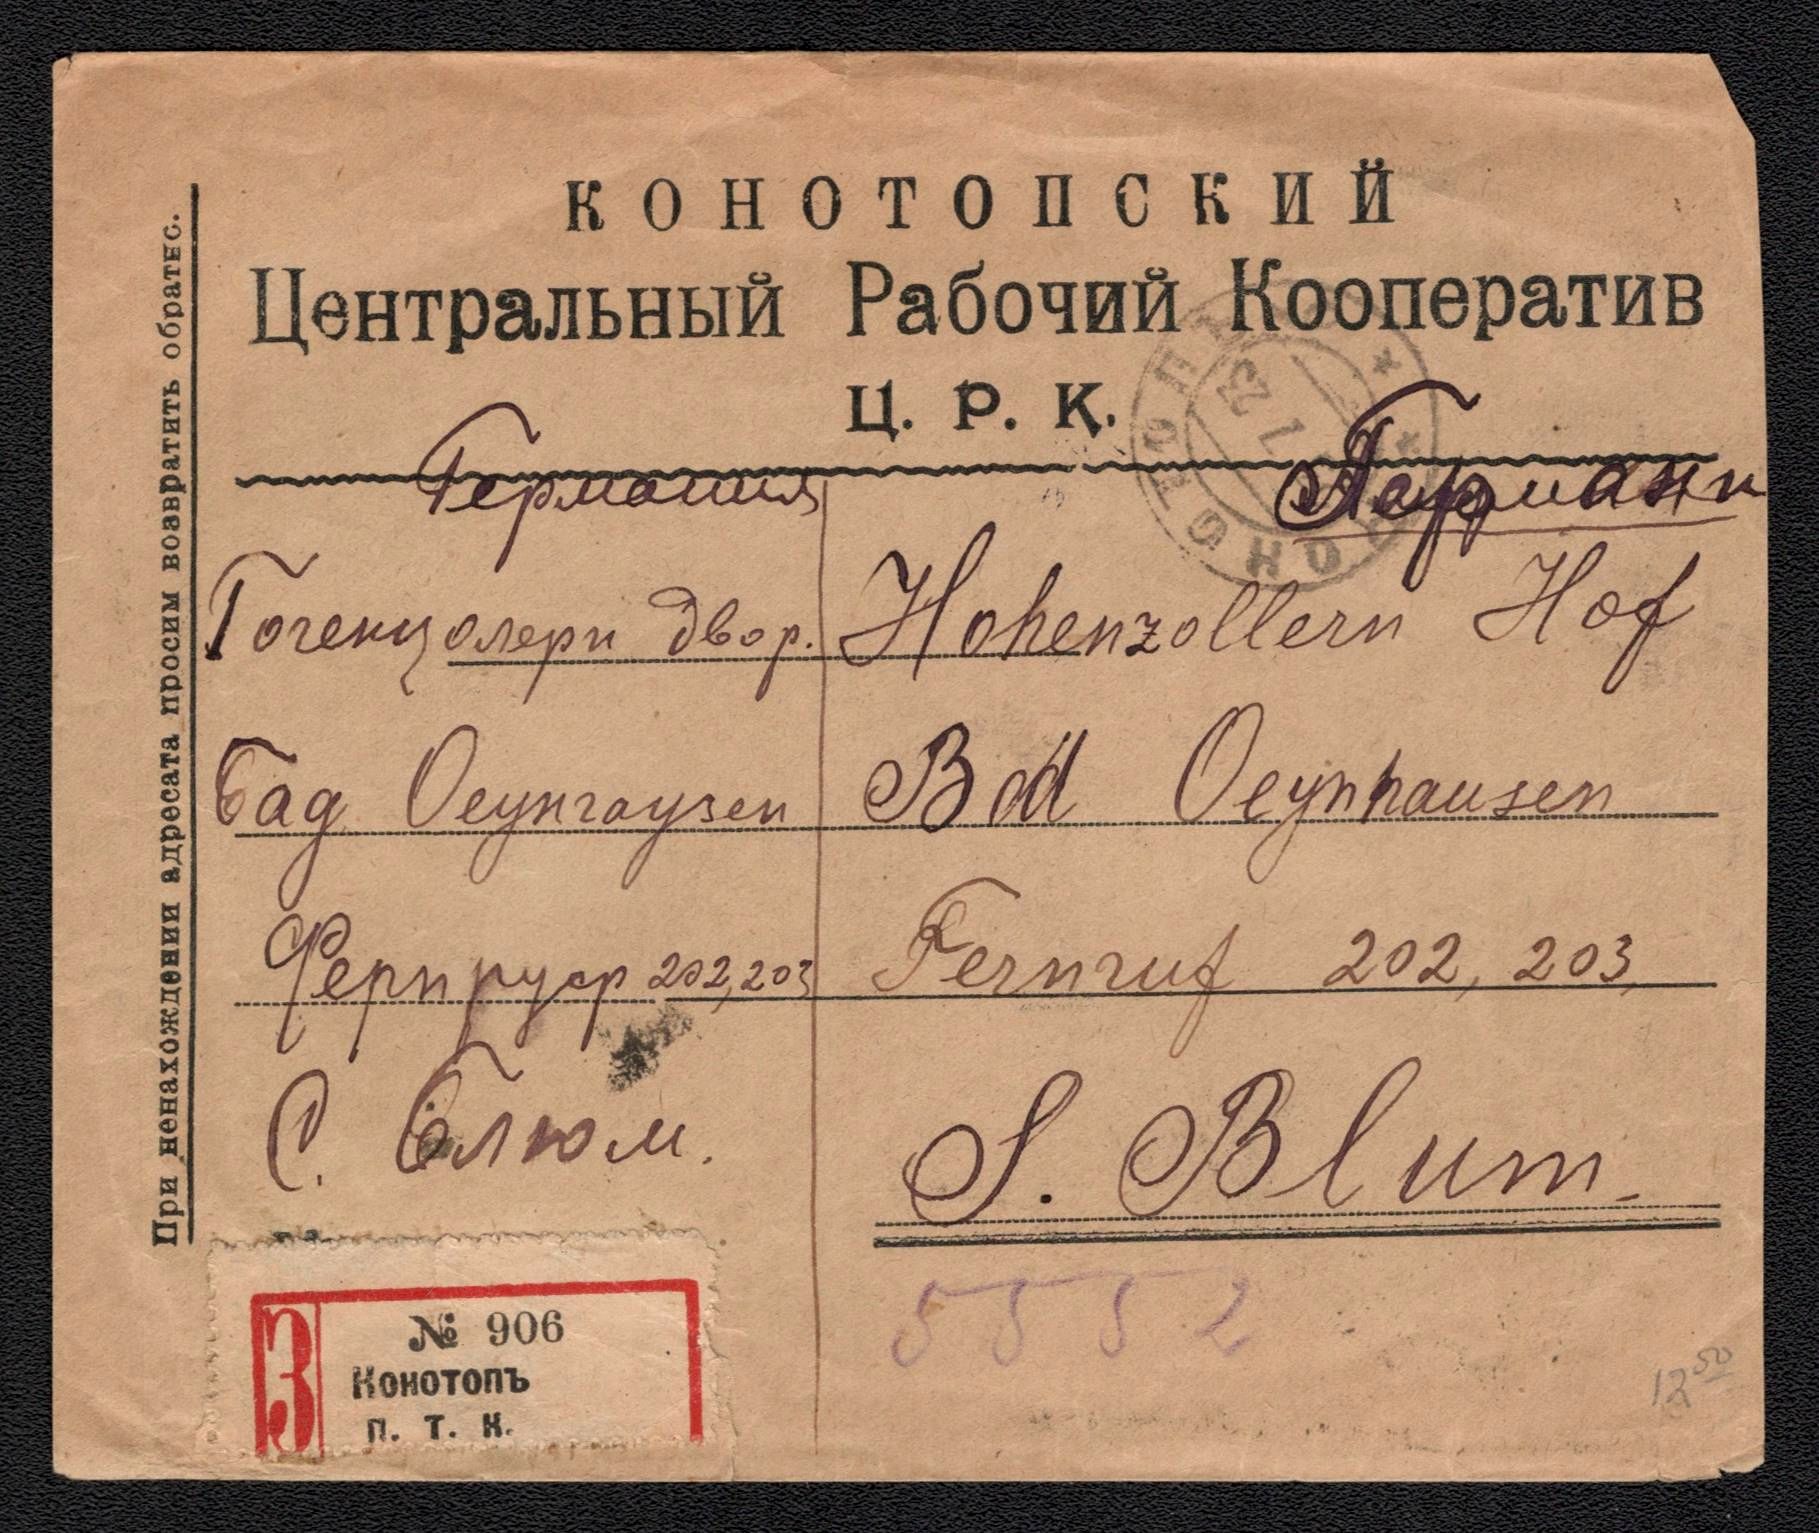 КОНОТОПСКИЙ
Центральный Рабочий Кооператив
Ц. Р. К.
При ненахождении адресата просим возвратить обратно.
Германия
Гогенцолерн двор.
Бад Oeyнгаузен
Фернруф 202,203
С. Блюм.
Hohenzollern Hof
Bad Oeynhausen
Fernruf 202, 203,
S. Blum.
З
№ 906
Конотопъ
П. Т. К.
5552
12 50